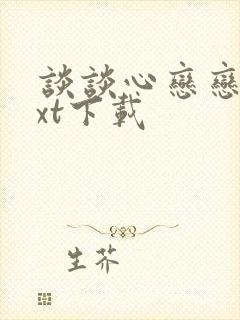 談談心戀戀
xt下載
生芥